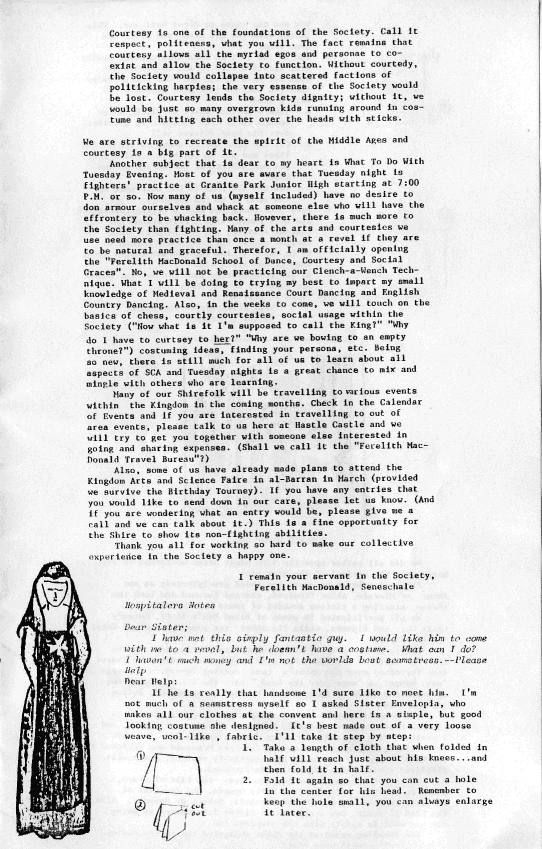 Courtesy is one of the foundations of the Society. Call it
respect, politeness, what you will. The fact remains that
courtesy allows all the myriad egos and personae to co-
exist and allow the Society to function. Without courtedy,
the Society would collapse into scattered factions of
politicking harpies; the very essense of the Society would
be lost. Courtesy lends the Society dignity; without it, we
would be just so many overgrown kids running around in cos-
tume and hitting each other over the heads with sticks.
We are striving to recreate the spirit of the Middle Ages and
courtesy is a big part of it.
Another subject that is dear to my heart is What To Do With
Tuesday Evening. Most of you are aware that Tuesday night is
fighters' practice at Granite Park Junior High starting at 7:00
P.M. or so. Now many of us (myself included) have no desire to
don armour ourselves and whack at someone else who will have the
effrontery to be whacking back. However, there is much more to
the Society than fighting. Many of the arts and courtesies we
use need more practice than once a month at a revel if they are
to be natural and graceful. Therefor, I am officially opening
the "Ferelith MacDonald School of Dance, Courtesy and Social
Graces". No, we will not be practicing our Clench-a-Wench Tech-
nique. What I will be doing to trying my best to impart my small
knowledge of Medieval and Renaissance Court Dancing and English
Country Dancing. Also, in the weeks to come, we will touch on the
basics of chess, courtly courtesies, social usage within the
Society ("Now what is it I'm supposed to call the King?" "Why
do I have to curtsey to her?" "Why are we bowing to an empty
throne?") costuming ideas, finding your persona, etc. Being
so new, there is still much for all of us to learn about all
aspects of SCA and Tuesday nights is a great chance to mix and
mingle with others who are learning.
Many of our Shirefolk will be travelling to various events
within the Kingdom in the coming months. Check in the Calendar
of Events and if you are interested in travelling to out of
area events, please talk to us here at Hastle Castle and we
will try to get you together with someone else interested in
going and sharing expenses. (Shall we call it the "Ferelith Mac-
Donald Travel Bureau"?)
Also, some of us have already made plans to attend the
Kingdom Arts and Science Faire in al-Barran in March (provided
we survive the Birthday Tourney). If you have any entries that
you would like to send down in our care, please let us know. (And
if you are wondering what an entry would be, please give me a
call and we can talk about it.) This is a fine opportunity for
the Shire to show its non-fighting abilities.
Thank you all for working so hard to make our collective
experience in the Society a happy one.
I remain your servant in the Society,
Ferelith MacDonald, Seneschale
Hospitalers Notes
Dear Sister;
I have met this simply fantastic guy. I would like him to come
with me to a revel, but he doesn't have a costume. What can I do?
I haven't much money and I'm not the worlds best seamstress.--Please
Help
Dear Help:
If he is really that handsome I'd sure like to meet him. I'm
not much of a seamstress myself so I asked Sister Envelopia, who
makes all our clothes at the convent and here is a simple, but good
looking costume she designed. It's best made out of a very loose
weave, wool-like , fabric. I'll take it step by step:
1. Take a length of cloth that when folded in
half will reach just about his knees...and
then fold it in half.
2. Fold it again so that you can cut a hole
in the center for his head. Remember to
keep the hole small, you can always enlarge
it later.
1
2
cut
out